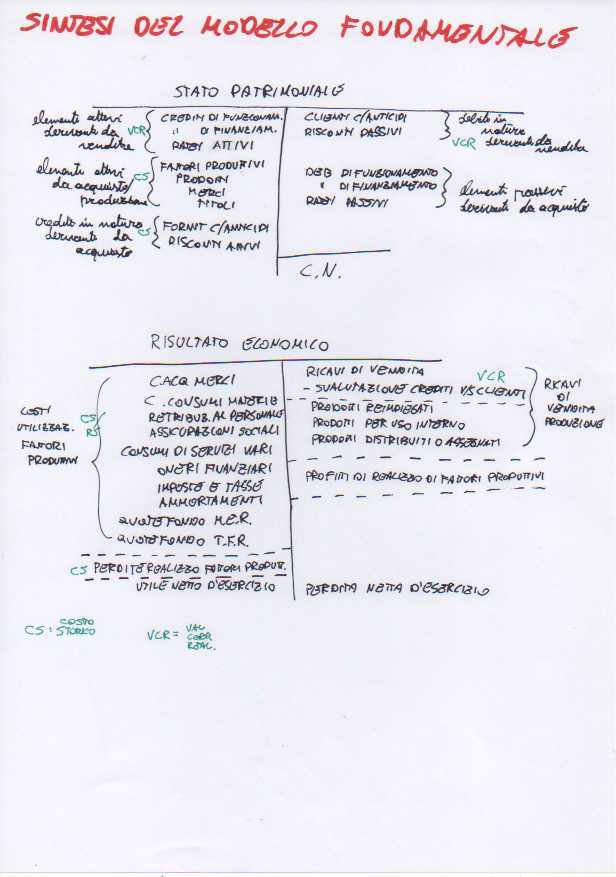 SINTESI DEL MODELLO FONDAMENTALE
STATO PATRIMONIALE
elementi attivi
derivanti da
vendite
VCR
CREDITI DI FUNZIONAM.
" DI FINANZIAM.
RATEI ATTIVI
elementi attivi
da acquisto/
produzione
CS
FATTORI PRODUTTIVI
PRODOTTI
MERCI
TITOLI
credito in natura
derivante da
acquisto
CS
FORNIT C/ANTICIPI
RISCONTI ATTIVI
CLIENTI C/ANTICIPI
RISCONTI PASSIVI
debito in
natura
VCR derivante da
vendita
DEBITI DI FUNZIONAMENTO
" DI FINANZIAMENTO
RATEI PASSIVI
elementi passivi
derivanti da acquisto
C.N.
RISULTATO ECONOMICO
COSTI
UTILIZZAZ.
FATTORI
PRODUTTIVI
CS
RS
C.ACQ MERCI
C. CONSUMI MATERIE
RETRIBUZ. AL PERSONALE
ASSICURAZIONI SOCIALI
CONSUMI DI SERVIZI VARI
ONERI FINANZIARI
IMPOSTE E TASSE
AMMORTAMENTI
QUOTE FONDO M.E.R.
QUOTE FONDO T.F.R.
CS PERDITE REALIZZO FATTORI PRODUTT.
UTILE NETTO D'ESERCIZIO
RICAVI DI VENDITA
VCR
- SVALUTAZIONE CREDITI V/S CLIENTI
PRODOTTI REIMPIEGATI
PRODOTTI PER USO INTERNO
PRODOTTI DISTRIBUITI O ASSEGNATI
RICAVI
DI
VENDITA
PRODUZIONE
PROFITTI DI REALIZZO DI FATTORI PRODUTTIVI
PERDITA NETTA D'ESERCIZIO
CS = COSTO
STORICO
VCR = VAL
CORR
REAL.